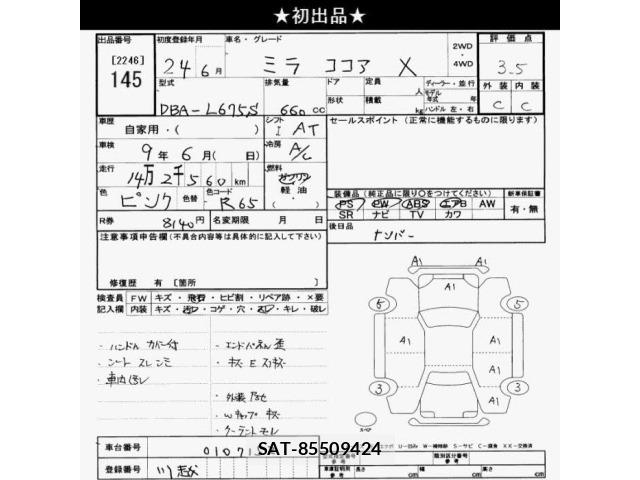 ★初出品★
出品番号
[2246]
145
初度登録年月
24年6月
車名・グレード
ミラ ココア X
2WD
・
4WD
評価点
3.5
型式
DBA-L675S
排気量
660 cc
ドア
形状
定員
人
積載
kg
ディーラー・並行
モデル
年式 年
ハンドル 左・右
外装 内装
C C
車歴
自家用・( )
シフト
I AT
セールスポイント(正常に機能するものに限ります)
車検
9年6月( 日)
冷房
A/C
走行
14万2千560km
燃料
ガソリン
軽油
色
ピンク
色替
色コード
R65
装備品(純正品に限り○をつけてください)
新車保証書
PS PW ABS エアB AW
SR ナビ TV カワ
有・無
R券
8140円
名変期限 月 日
後日品
ナンバー
注意事項申告欄(不具合内容等は具体的に記入して下さい)
修復歴 有[箇所 ]
検査員
記入欄
FW キズ・飛石・ヒビ割・リペア跡・×要
内装 キズ・汚レ・コゲ・穴・スレ・キレ・破レ
・ハンドル カバー付
・シート スレ シミ
・車内汚レ
・エンドパネル歪
・キズ E スリキズ
・外装
・Wキャップ キズ
・クーラントモレ
A1
A1 A1
5 5
A1 A1
A1
3 3
スペア
車台番号
SAT-85509424
登録番号
川越
車庫証明用
参考
類別区分番号
参考
長さ cm
幅 cm
高さ cm